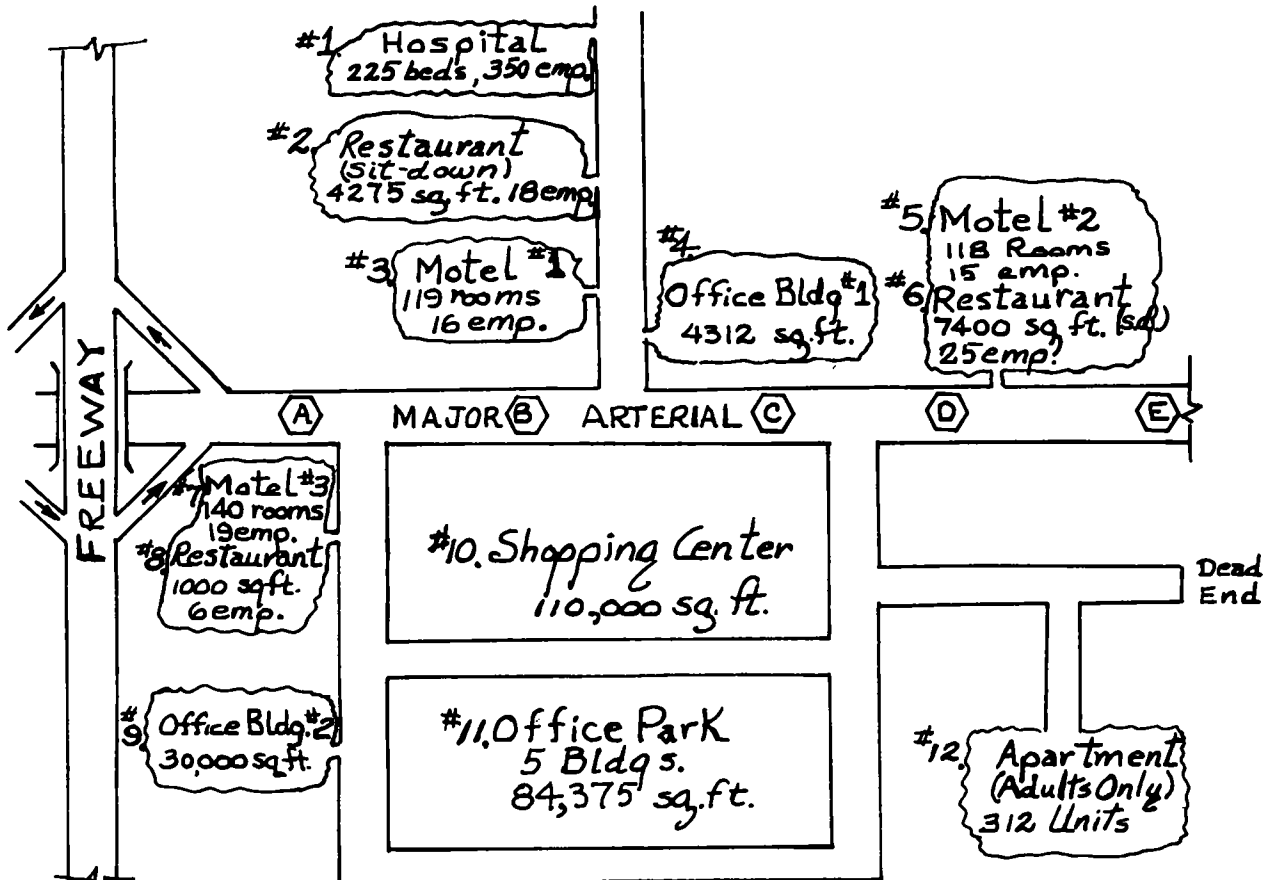 #1. Hospital
225 beds, 350 emp.
#2. Restaurant
(Sit-down)
4275 sq. ft. 18 emp.
#3. Motel #1
119 rooms
16 emp.
#4.
Office Bldg #1
4312 sq. ft.
#5. Motel #2
118 Rooms
15 emp.
#6. Restaurant
7400 sq ft. (s.d.)
25 emp.
FREEWAY
A MAJOR B ARTERIAL C D E
#7 Motel #3
140 rooms
19 emp.
#8. Restaurant
1000 sq ft.
6 emp.
#9. Office Bldg. #2
30,000 sq ft.
#10. Shopping Center
110,000 sq. ft.
#11. Office Park
5 Bldgs.
84,375 sq. ft.
Dead
End
#12. Apartment
(Adults Only)
312 Units